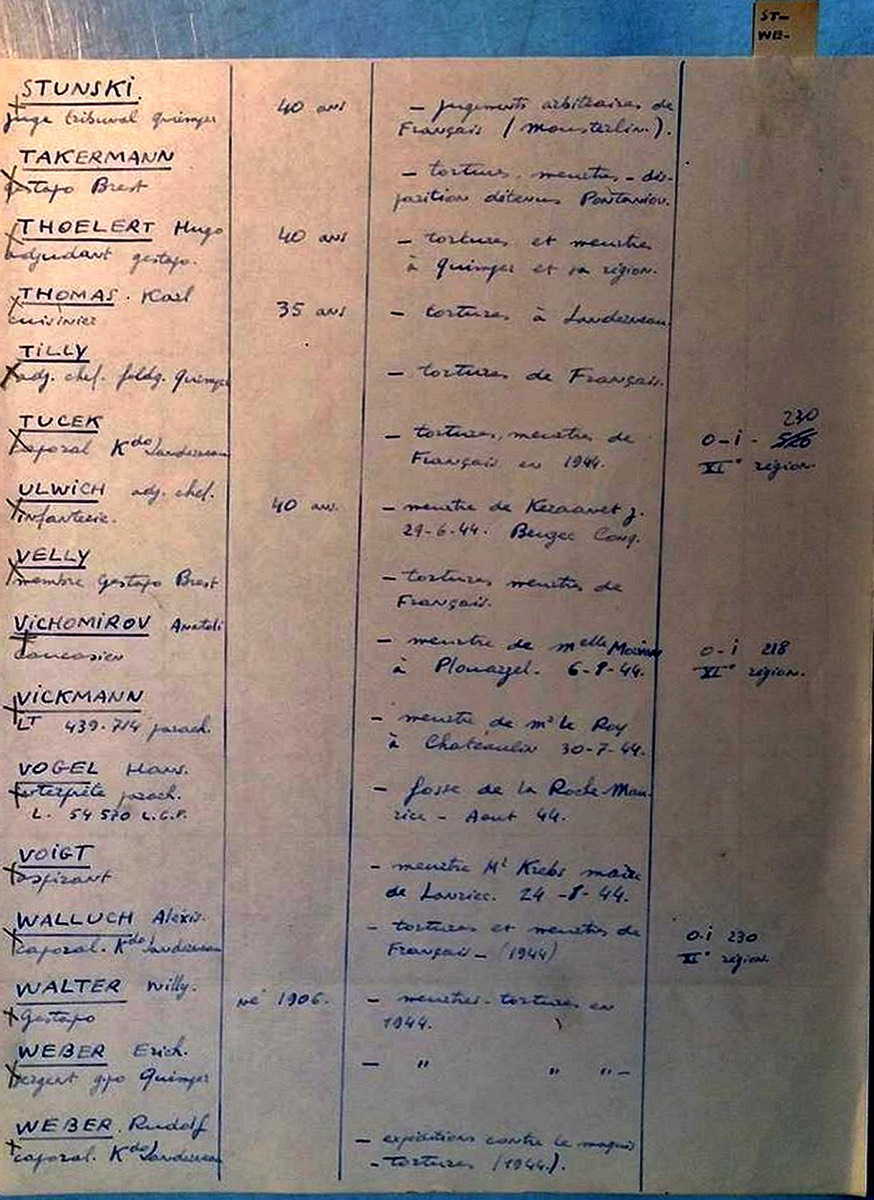 ST-
WE-
STUNSKI.
juge tribunal Quimper 40 ans - jugements arbitraires de
Français (Mousterlin.).
TAKERMANN
gestapo Brest - tortures. meurtres - dis-
parition détenus Pontaniou.
THOELERT Hugo
adjudant gestapo. 40 ans - tortures et meurtres
à Quimper et sa région.
THOMAS. Karl
cuisinier 35 ans - tortures à Landerneau.
TILLY
adj. chef. feldg. Quimper - tortures de Français.
TUCEK
caporal Kdo Landerneau - tortures, meurtres de
Français en 1944. O-i - 230
XI° région
ULWICH adj. chef.
infanterie. 40 ans. - meurtre de
29-6-44. Beuzec Conq.
VELLY
membre gestapo Brest - tortures meurtres de
Français.
VICHOMIROV Anatoli
caucasien - meurtre de Melle
à Plouarzel. 6-8-44. O-i 218
XI° région.
VICKMANN
LT 439.714 parach. - meurtre de Mr Le Roy
à Chateaulin 30-7-44.
VOGEL Hans.
interprète parach.
L. 54 570 L.G.P. - fosse de la Roche-Mau-
rice - Aout 44.
VOIGT
aspirant - meurtre Mr Krebs maire
de Lanriec. 24-8-44.
WALLUCH Alexis.
caporal. Kdo Landerneau - tortures et meurtres de
Français - (1944) O.i 230
XI° région.
WALTER Willy.
Gestapo né 1906. - meurtres - tortures en
1944.
WEBER Erich.
sergent gpo Quimper - " " " -
WEBER. Rudolf
caporal. Kdo Landerneau - expéditions contre le maquis
- tortures (1944.).